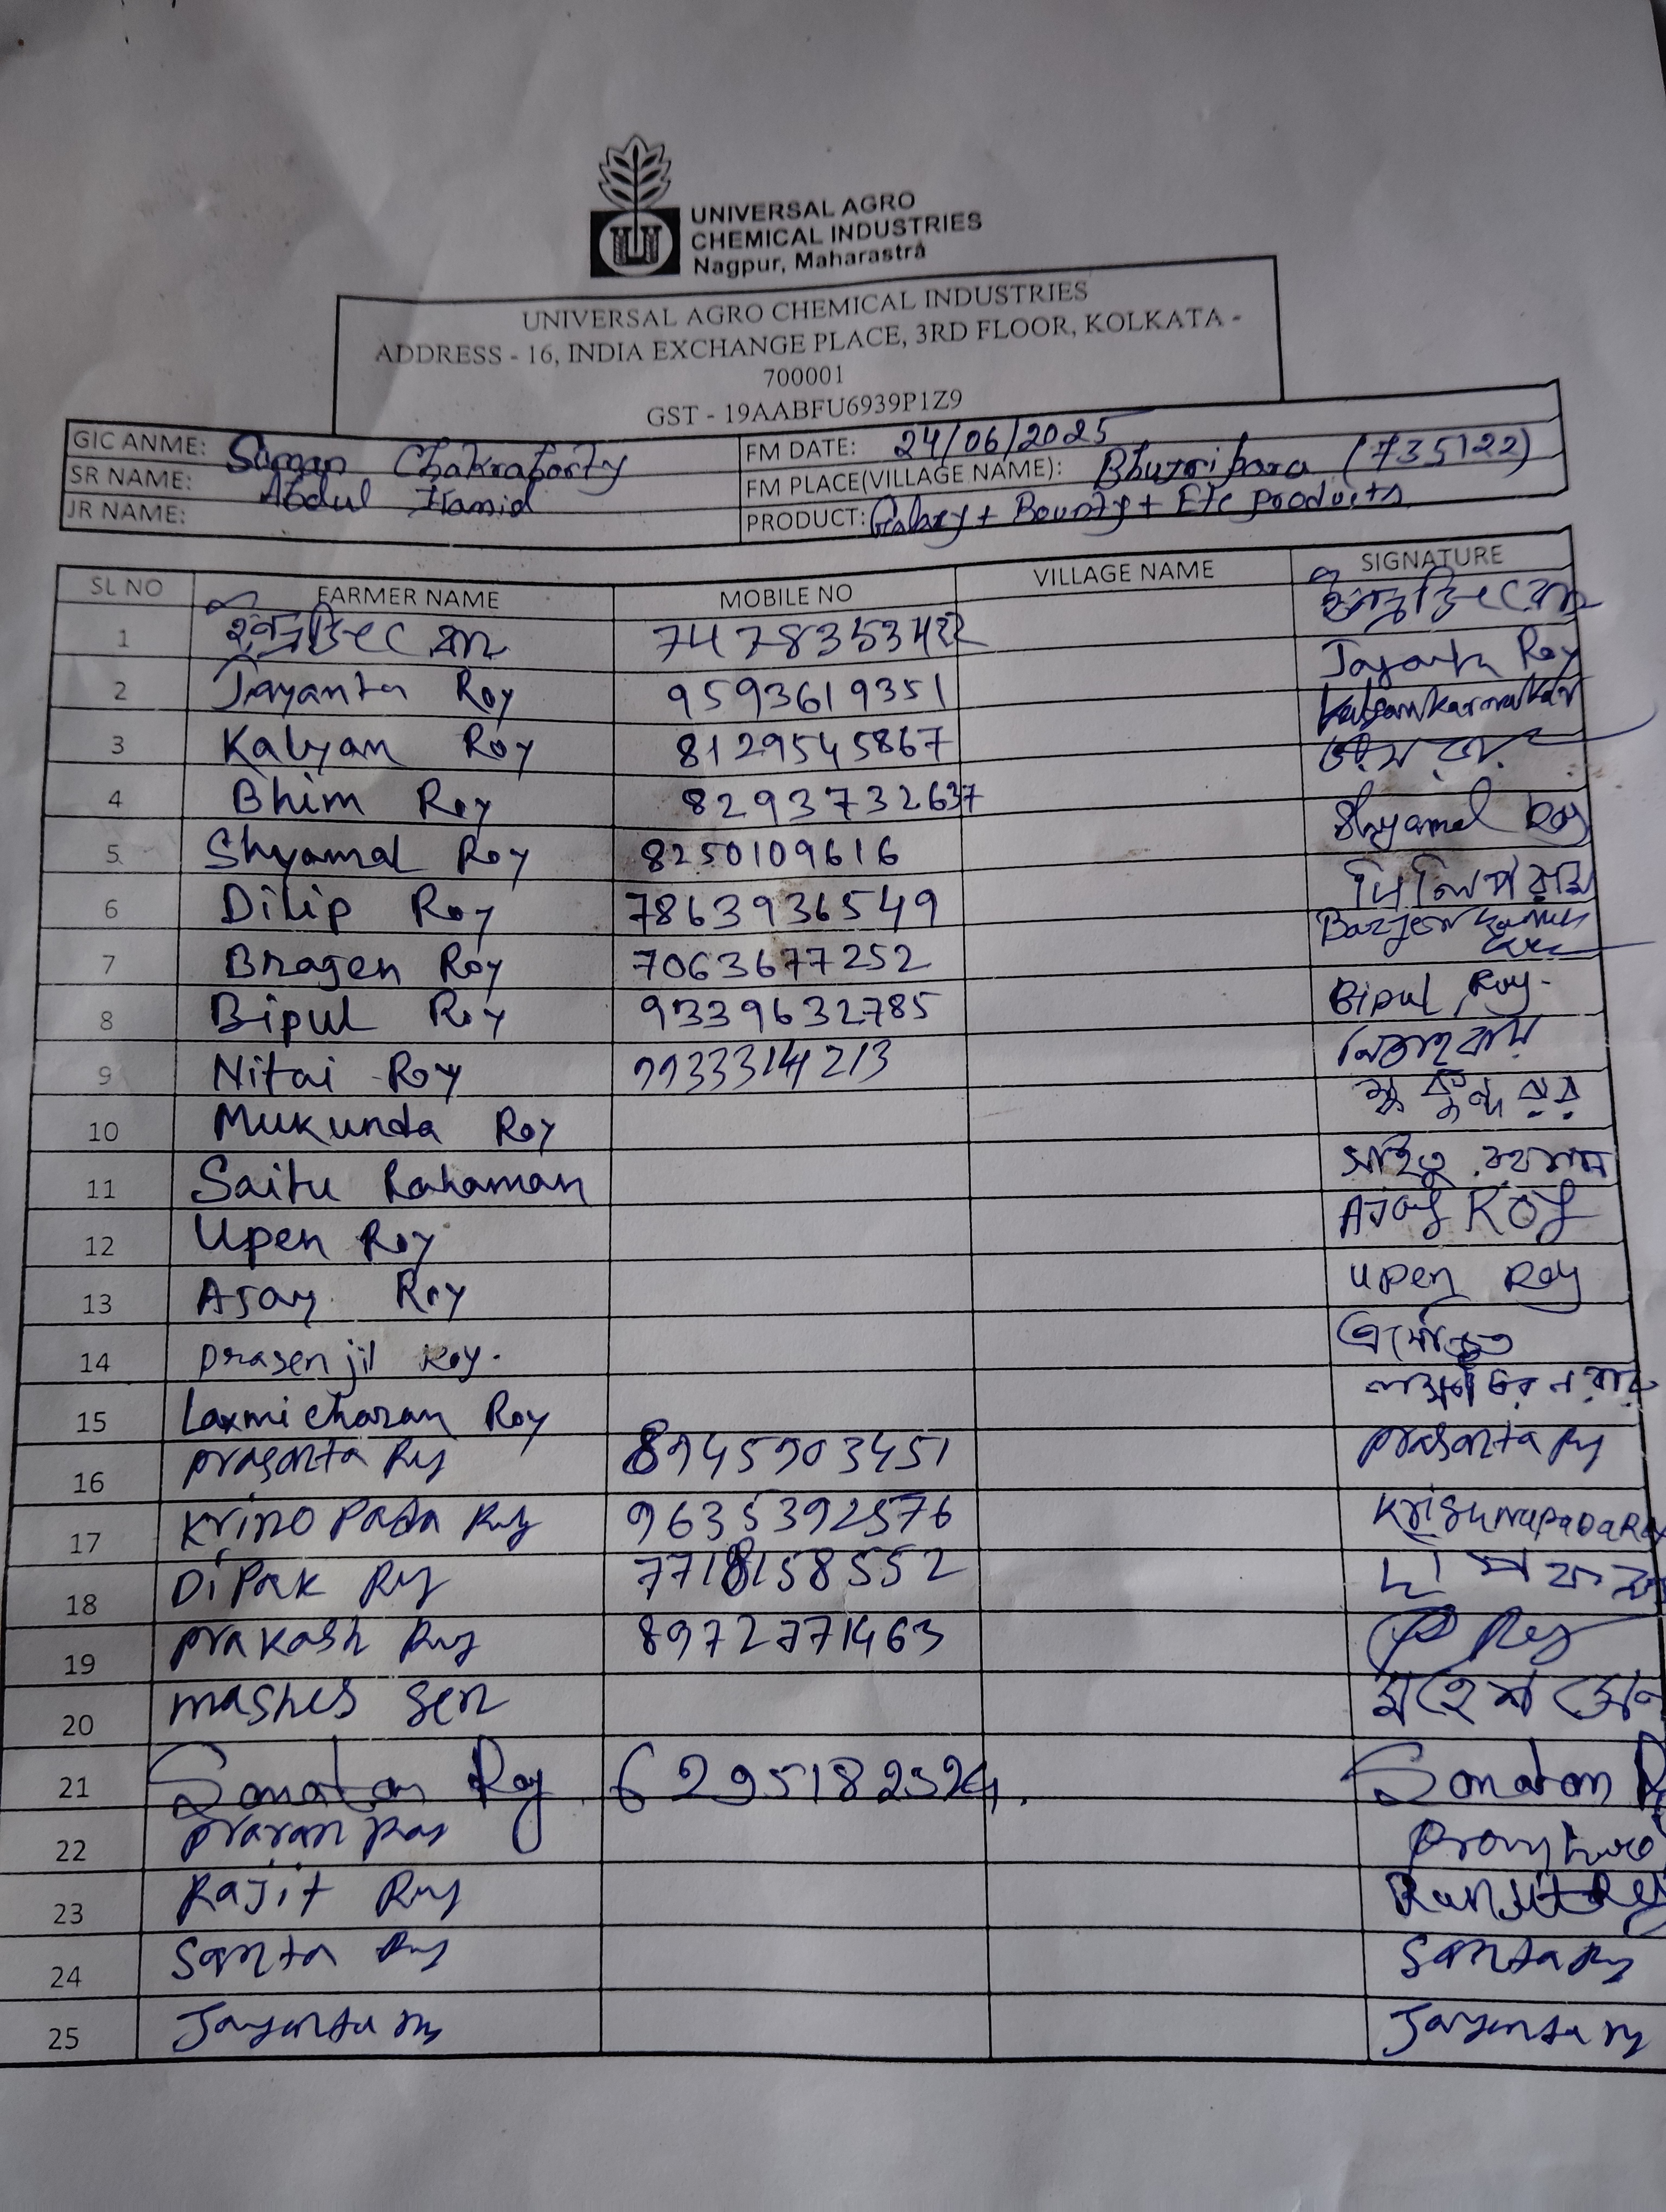 UNIVERSAL AGRO
CHEMICAL INDUSTRIES
Nagpur, Maharastra
UNIVERSAL AGRO CHEMICAL INDUSTRIES
ADDRESS - 16, INDIA EXCHANGE PLACE, 3RD FLOOR, KOLKATA -
700001
GST - 19AABFU6939P1Z9
GIC ANME: Suman Chakraborty FM DATE: 24/06/2025
SR NAME: Abdul Hamid FM PLACE(VILLAGE NAME): (735122)
JR NAME: PRODUCT: Galaxy + Bounty + Etc products
SL NO FARMER NAME MOBILE NO VILLAGE NAME SIGNATURE
1
2 Jayanta Roy 9593619351 Jayanta Roy
3 Kalyan Roy 8129545867
4 Bhim Roy 8293732637
5 Shyamal Roy 8250109616 Shyamal Roy
6 Dilip Roy 7863936549 দিলিপ রায়
7 Bragen Roy 7063677252
8 Bipul Roy 9339632785 Bipul Roy.
9 Nitai Roy নিতাই রায়
10 Mukunda Roy
11 Saitu Rahaman
12 Upen Roy Ajoy Roy
13 Ajay Roy Upen Roy
14 prasenjit Roy.
15 Laxmicharan Roy
16 prasanta Ry 8945903451 prasanta Ry
17 Pada Ry 9635392576 KrishnapadaRoy
18 DiPak Ry
19 prakash Ry 8972771463 P Roy
20 mashes sen মহেশ সেন
21 Sonatan Roy Sonatan
22
23 Rajit Ry Ranjit Roy
24 Santa Ry Santa Ry
25 Jayanta ry Jayanta ry